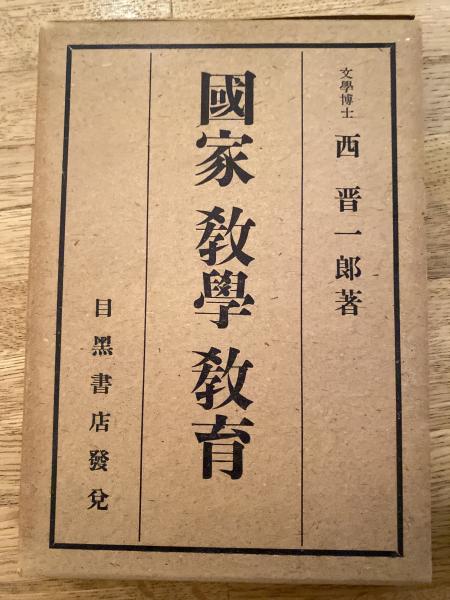 文學博士 西 晋一郎著
國家 教學 教育
目黑書店發兌